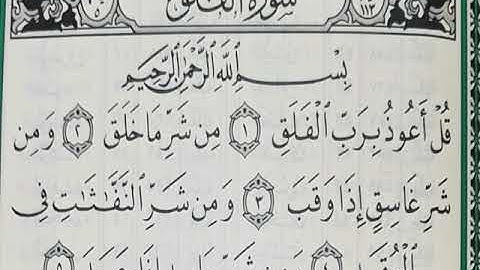 سُورَةُ الْفَلَقِ
بِسْمِ ٱللَّهِ ٱلرَّحْمَٰنِ ٱلرَّحِيمِ
قُلْ أَعُوذُ بِرَبِّ ٱلْفَلَقِ ١ مِن شَرِّ مَا خَلَقَ ٢ وَمِن
شَرِّ غَاسِقٍ إِذَا وَقَبَ ٣ وَمِن شَرِّ ٱلنَّفَّٰثَٰتِ فِي